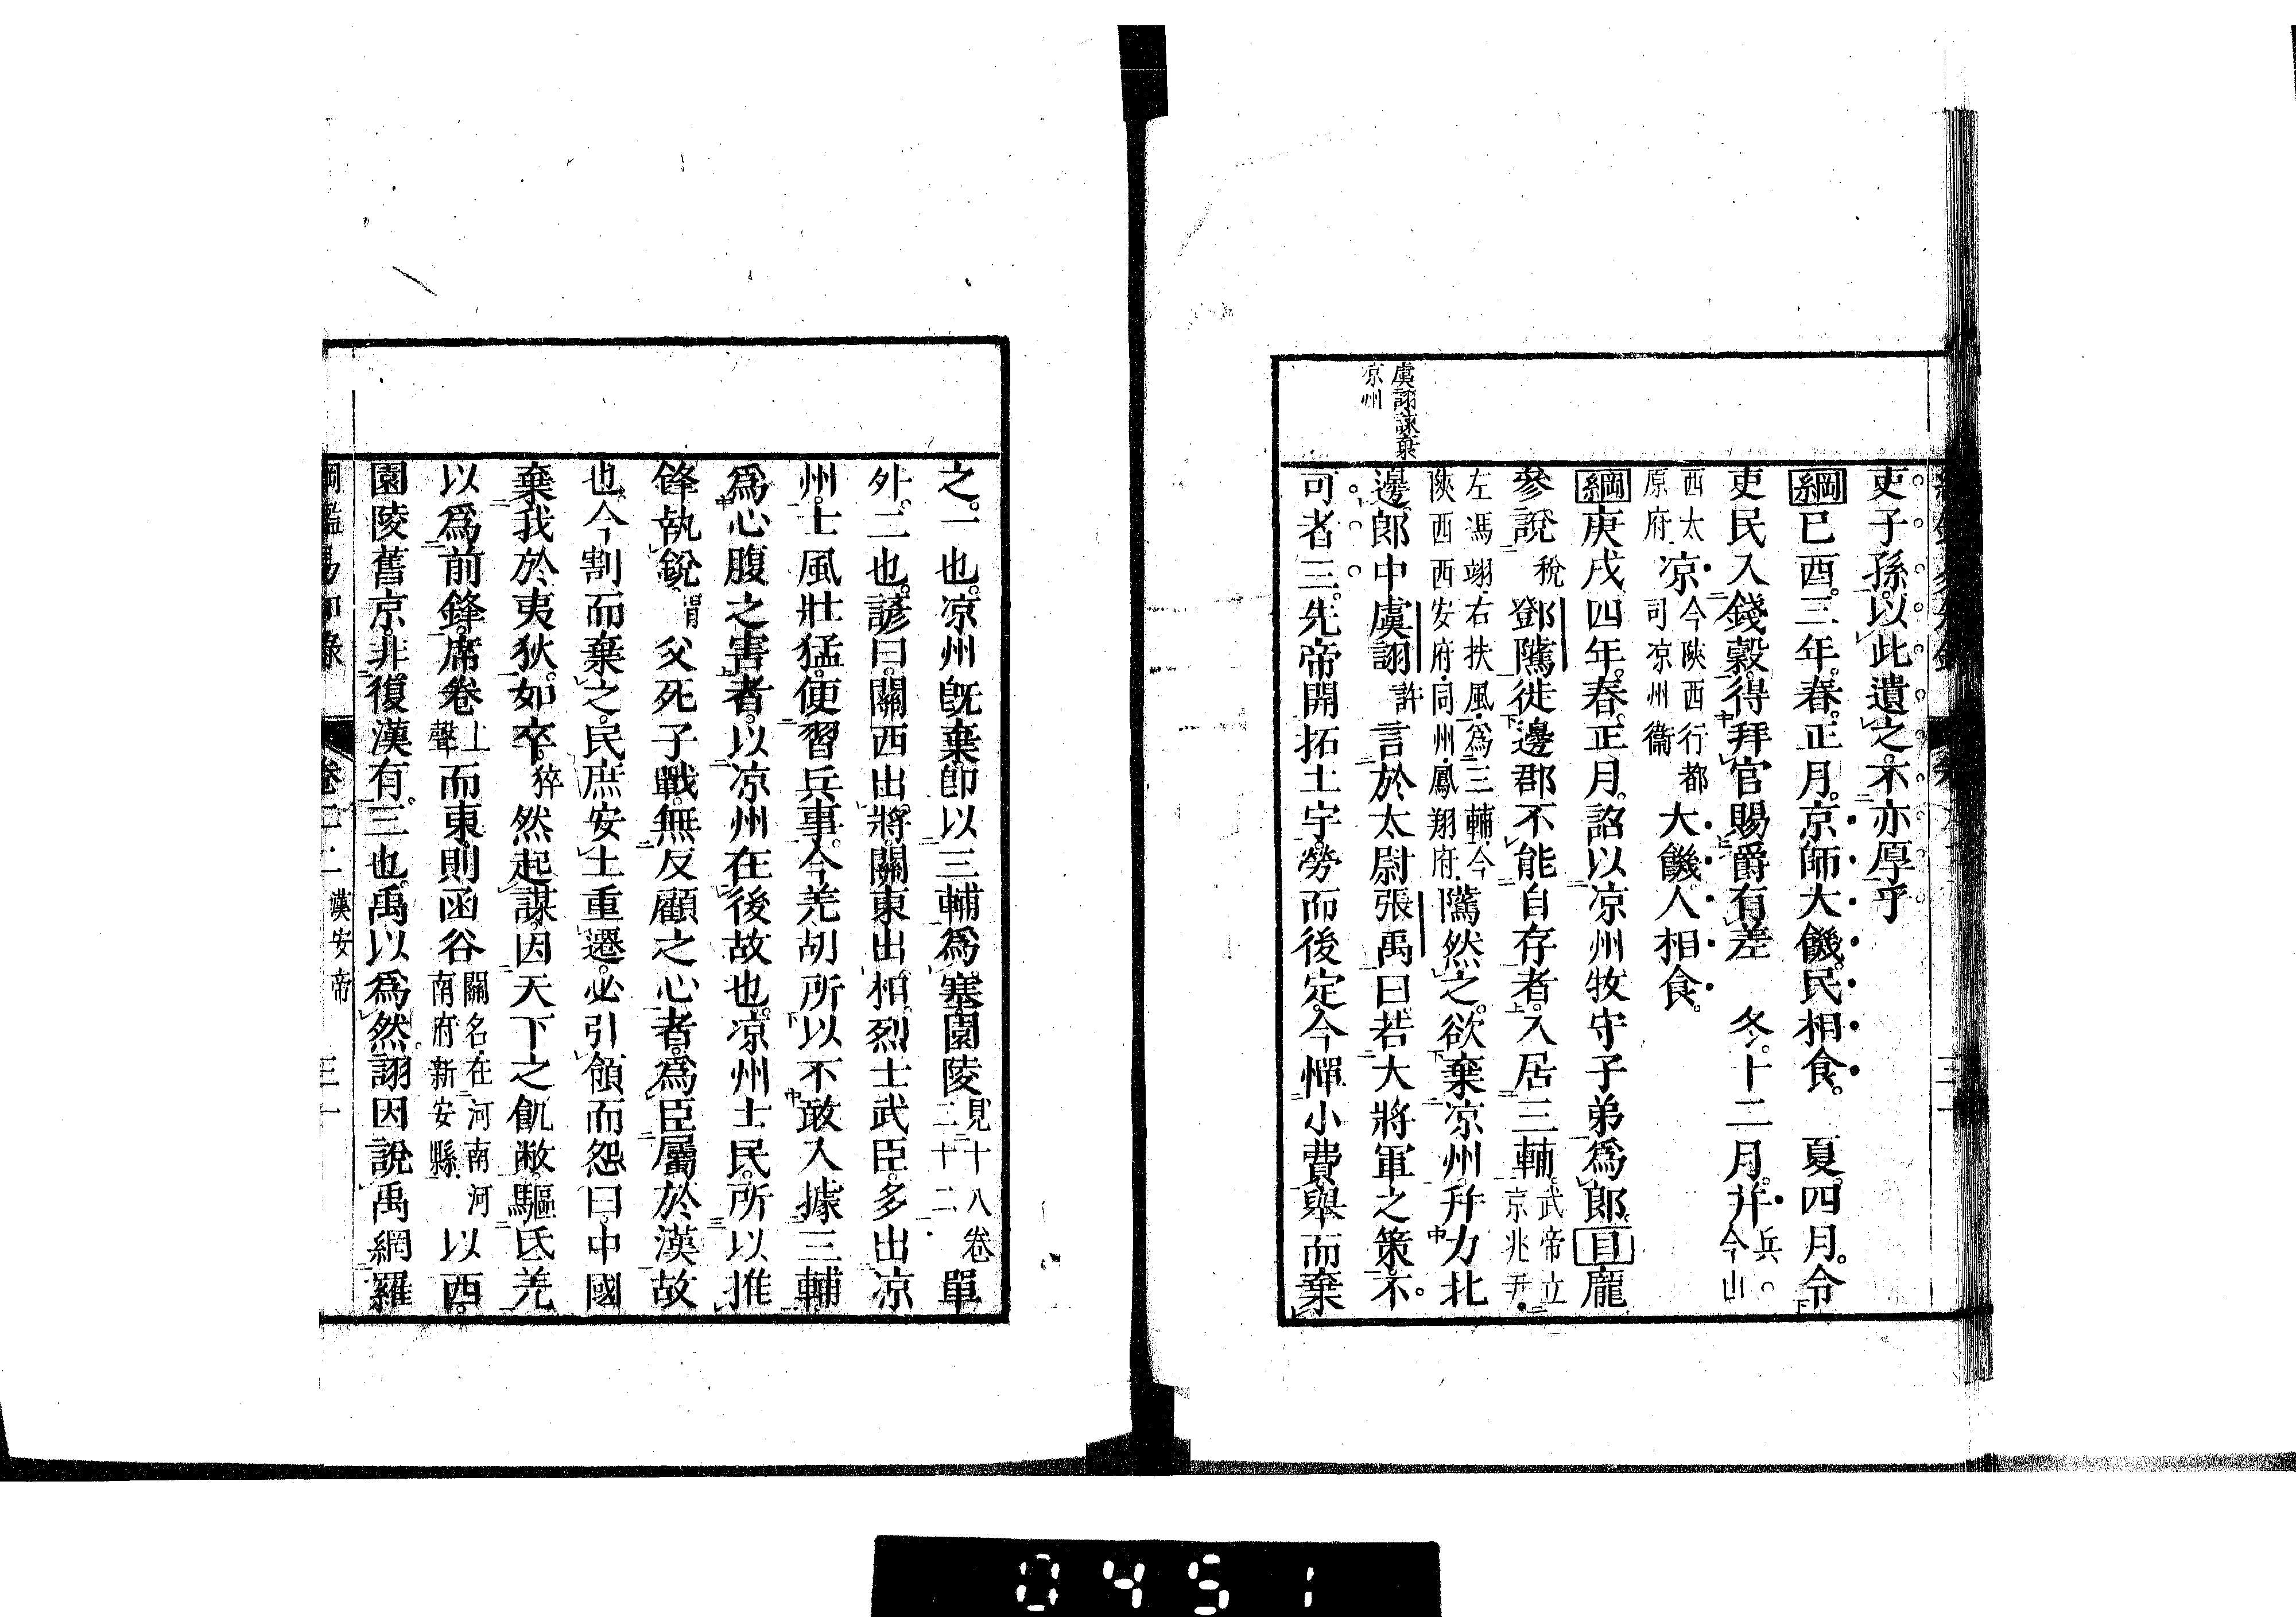 吏子孫以此遺之。不亦厚乎
綱己酉。三年。春。正月。京師大饑。民相食。　夏。四月。令
吏民入錢穀。得拜官賜爵有差　冬。十二月。幷兵今山
西太原府。凉今陝西行都司凉州衞大饑。人相食。
綱庚戌四年。春。正月。詔以凉州牧守子弟爲郎。目龐
參說稅鄧隲徙邊郡不能自存者。入居三輔。武帝立京兆尹
左馮翊右扶風爲三輔今陝西西安府同州鳳翔府隲然之。欲棄凉州幷力北
邊。郎中虞詡許言於太尉張禹曰。若大將軍之策。不
可者三。先帝開拓土宇。勞而後定。今憚小費。舉而棄
虞詡諫棄
凉州
之。一也。凉州旣棄。卽以三輔爲塞。園陵見十八卷二十二單
外。二也。諺曰。關西出將。關東出相。烈士武臣。多出凉
州。士風壯猛。便習兵事。今羌胡所以不敢入據三輔
爲心腹之害者。以凉州在後故也。凉州士民。所以推
鋒執銳。父死子戰。無反顧之心者。爲臣屬於漢故
也。今割而棄之。民庶安土重遷。必引領而怨曰。中國
棄我於夷狄。如卒猝然起謀。因天下之飢敝。驅氐羌
以爲前鋒。席卷上聲而東。則函谷關名在河南河南府新安縣以西。
園陵舊京。非復漢有。三也。禹以爲然。詡因說禹網羅
綱鑑易知錄　卷二十二　漢安帝